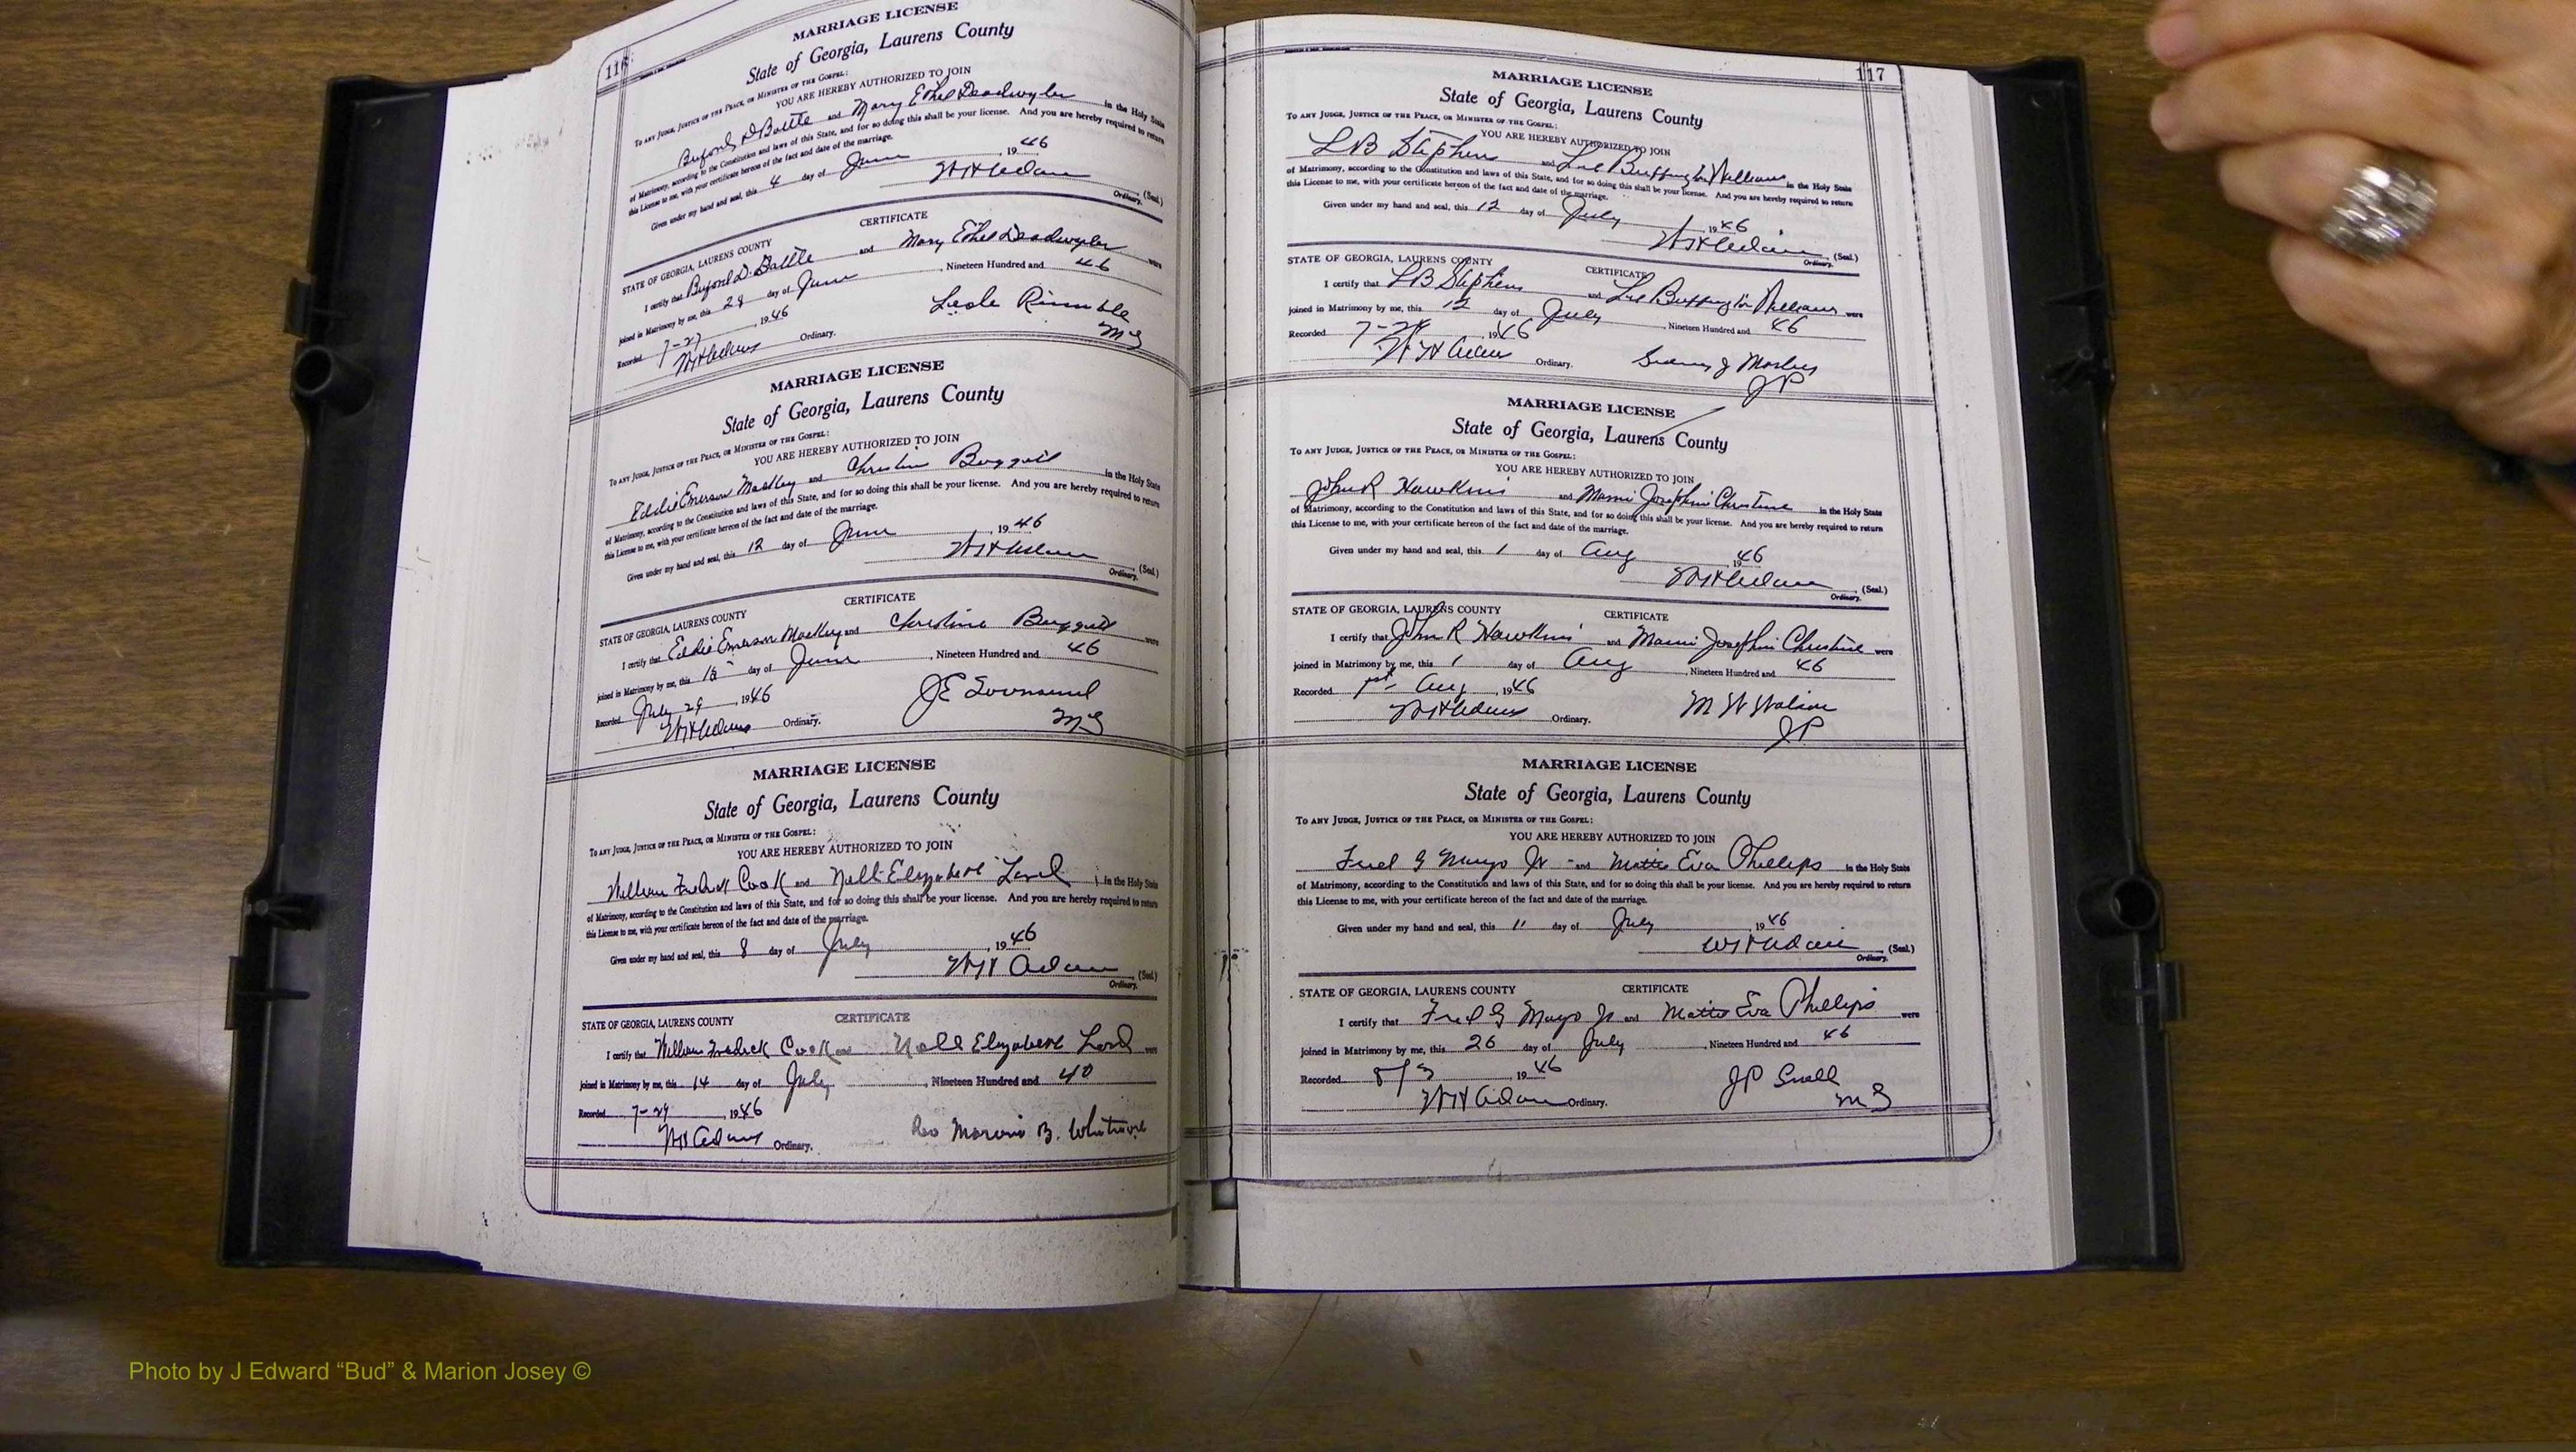 116
MARRIAGE LICENSE
State of Georgia, Laurens County
To any Judge, Justice of the Peace, or Minister of the Gospel:
YOU ARE HEREBY AUTHORIZED TO JOIN
Buford D Battle and Mary Ethel Deadwyler in the Holy State
of Matrimony, according to the Constitution and laws of this State, and for so doing this shall be your license. And you are hereby required to return
this License to me, with your certificate hereon of the fact and date of the marriage.
Given under my hand and seal, this 4 day of June, 1946
W H Adams (Seal.)
Ordinary.
CERTIFICATE
STATE OF GEORGIA, LAURENS COUNTY
I certify that Buford D. Battle and Mary Ethel Deadwyler were
joined in Matrimony by me, this 28 day of June, Nineteen Hundred and 46
Recorded 7-27, 1946
W H Adams Ordinary.
MG
MARRIAGE LICENSE
State of Georgia, Laurens County
To any Judge, Justice of the Peace, or Minister of the Gospel:
YOU ARE HEREBY AUTHORIZED TO JOIN
Eddie Emerson and Christine in the Holy State
of Matrimony, according to the Constitution and laws of this State, and for so doing this shall be your license. And you are hereby required to return
this License to me, with your certificate hereon of the fact and date of the marriage.
Given under my hand and seal, this 12 day of June, 1946
W H Adams (Seal.)
Ordinary.
CERTIFICATE
STATE OF GEORGIA, LAURENS COUNTY
I certify that Eddie Emerson and Christine were
joined in Matrimony by me, this 15 day of June, Nineteen Hundred and 46
Recorded July 29, 1946
W H Adams Ordinary.
J E Townsend
MG
MARRIAGE LICENSE
State of Georgia, Laurens County
To any Judge, Justice of the Peace, or Minister of the Gospel:
YOU ARE HEREBY AUTHORIZED TO JOIN
William Fredrick Cook and Nell Elizabeth Lord in the Holy State
of Matrimony, according to the Constitution and laws of this State, and for so doing this shall be your license. And you are hereby required to return
this License to me, with your certificate hereon of the fact and date of the marriage.
Given under my hand and seal, this 8 day of July, 1946
W H Adams (Seal.)
Ordinary.
CERTIFICATE
STATE OF GEORGIA, LAURENS COUNTY
I certify that William Fredrick Cook and Nell Elizabeth Lord were
joined in Matrimony by me, this 14 day of July, Nineteen Hundred and 40
Recorded 7-29, 1946
W H Adams Ordinary.
Rev Marvin B. Whitmore
117
MARRIAGE LICENSE
State of Georgia, Laurens County
To any Judge, Justice of the Peace, or Minister of the Gospel:
YOU ARE HEREBY AUTHORIZED TO JOIN
L B Stephens and Buffington Williams in the Holy State
of Matrimony, according to the Constitution and laws of this State, and for so doing this shall be your license. And you are hereby required to return
this License to me, with your certificate hereon of the fact and date of the marriage.
Given under my hand and seal, this 12 day of July, 1946
W H Adams (Seal.)
Ordinary.
STATE OF GEORGIA, LAURENS COUNTY
CERTIFICATE
I certify that L B Stephens and Buffington Williams were
joined in Matrimony by me, this 12 day of July, Nineteen Hundred and 46
Recorded 1946
W H Adams Ordinary.
JP
MARRIAGE LICENSE
State of Georgia, Laurens County
To any Judge, Justice of the Peace, or Minister of the Gospel:
YOU ARE HEREBY AUTHORIZED TO JOIN
John R Hawkins and Josephine Christine in the Holy State
of Matrimony, according to the Constitution and laws of this State, and for so doing this shall be your license. And you are hereby required to return
this License to me, with your certificate hereon of the fact and date of the marriage.
Given under my hand and seal, this 1 day of Aug, 1946
W H Adams (Seal.)
Ordinary.
STATE OF GEORGIA, LAURENS COUNTY
CERTIFICATE
I certify that John R Hawkins and Josephine Christine were
joined in Matrimony by me, this 1 day of Aug, Nineteen Hundred and 46
Recorded 1st Aug, 1946
W H Adams Ordinary.
JP
MARRIAGE LICENSE
State of Georgia, Laurens County
To any Judge, Justice of the Peace, or Minister of the Gospel:
YOU ARE HEREBY AUTHORIZED TO JOIN
Fred G Mayo Jr and Mattie Eva Phillips in the Holy State
of Matrimony, according to the Constitution and laws of this State, and for so doing this shall be your license. And you are hereby required to return
this License to me, with your certificate hereon of the fact and date of the marriage.
Given under my hand and seal, this 11 day of July, 1946
W H Adams (Seal.)
Ordinary.
STATE OF GEORGIA, LAURENS COUNTY
CERTIFICATE
I certify that Fred G Mayo Jr and Mattie Eva Phillips were
joined in Matrimony by me, this 26 day of July, Nineteen Hundred and 46
Recorded 8/3, 1946
W H Adams Ordinary.
J P Snell
MG
Photo by J Edward “Bud” & Marion Josey ©